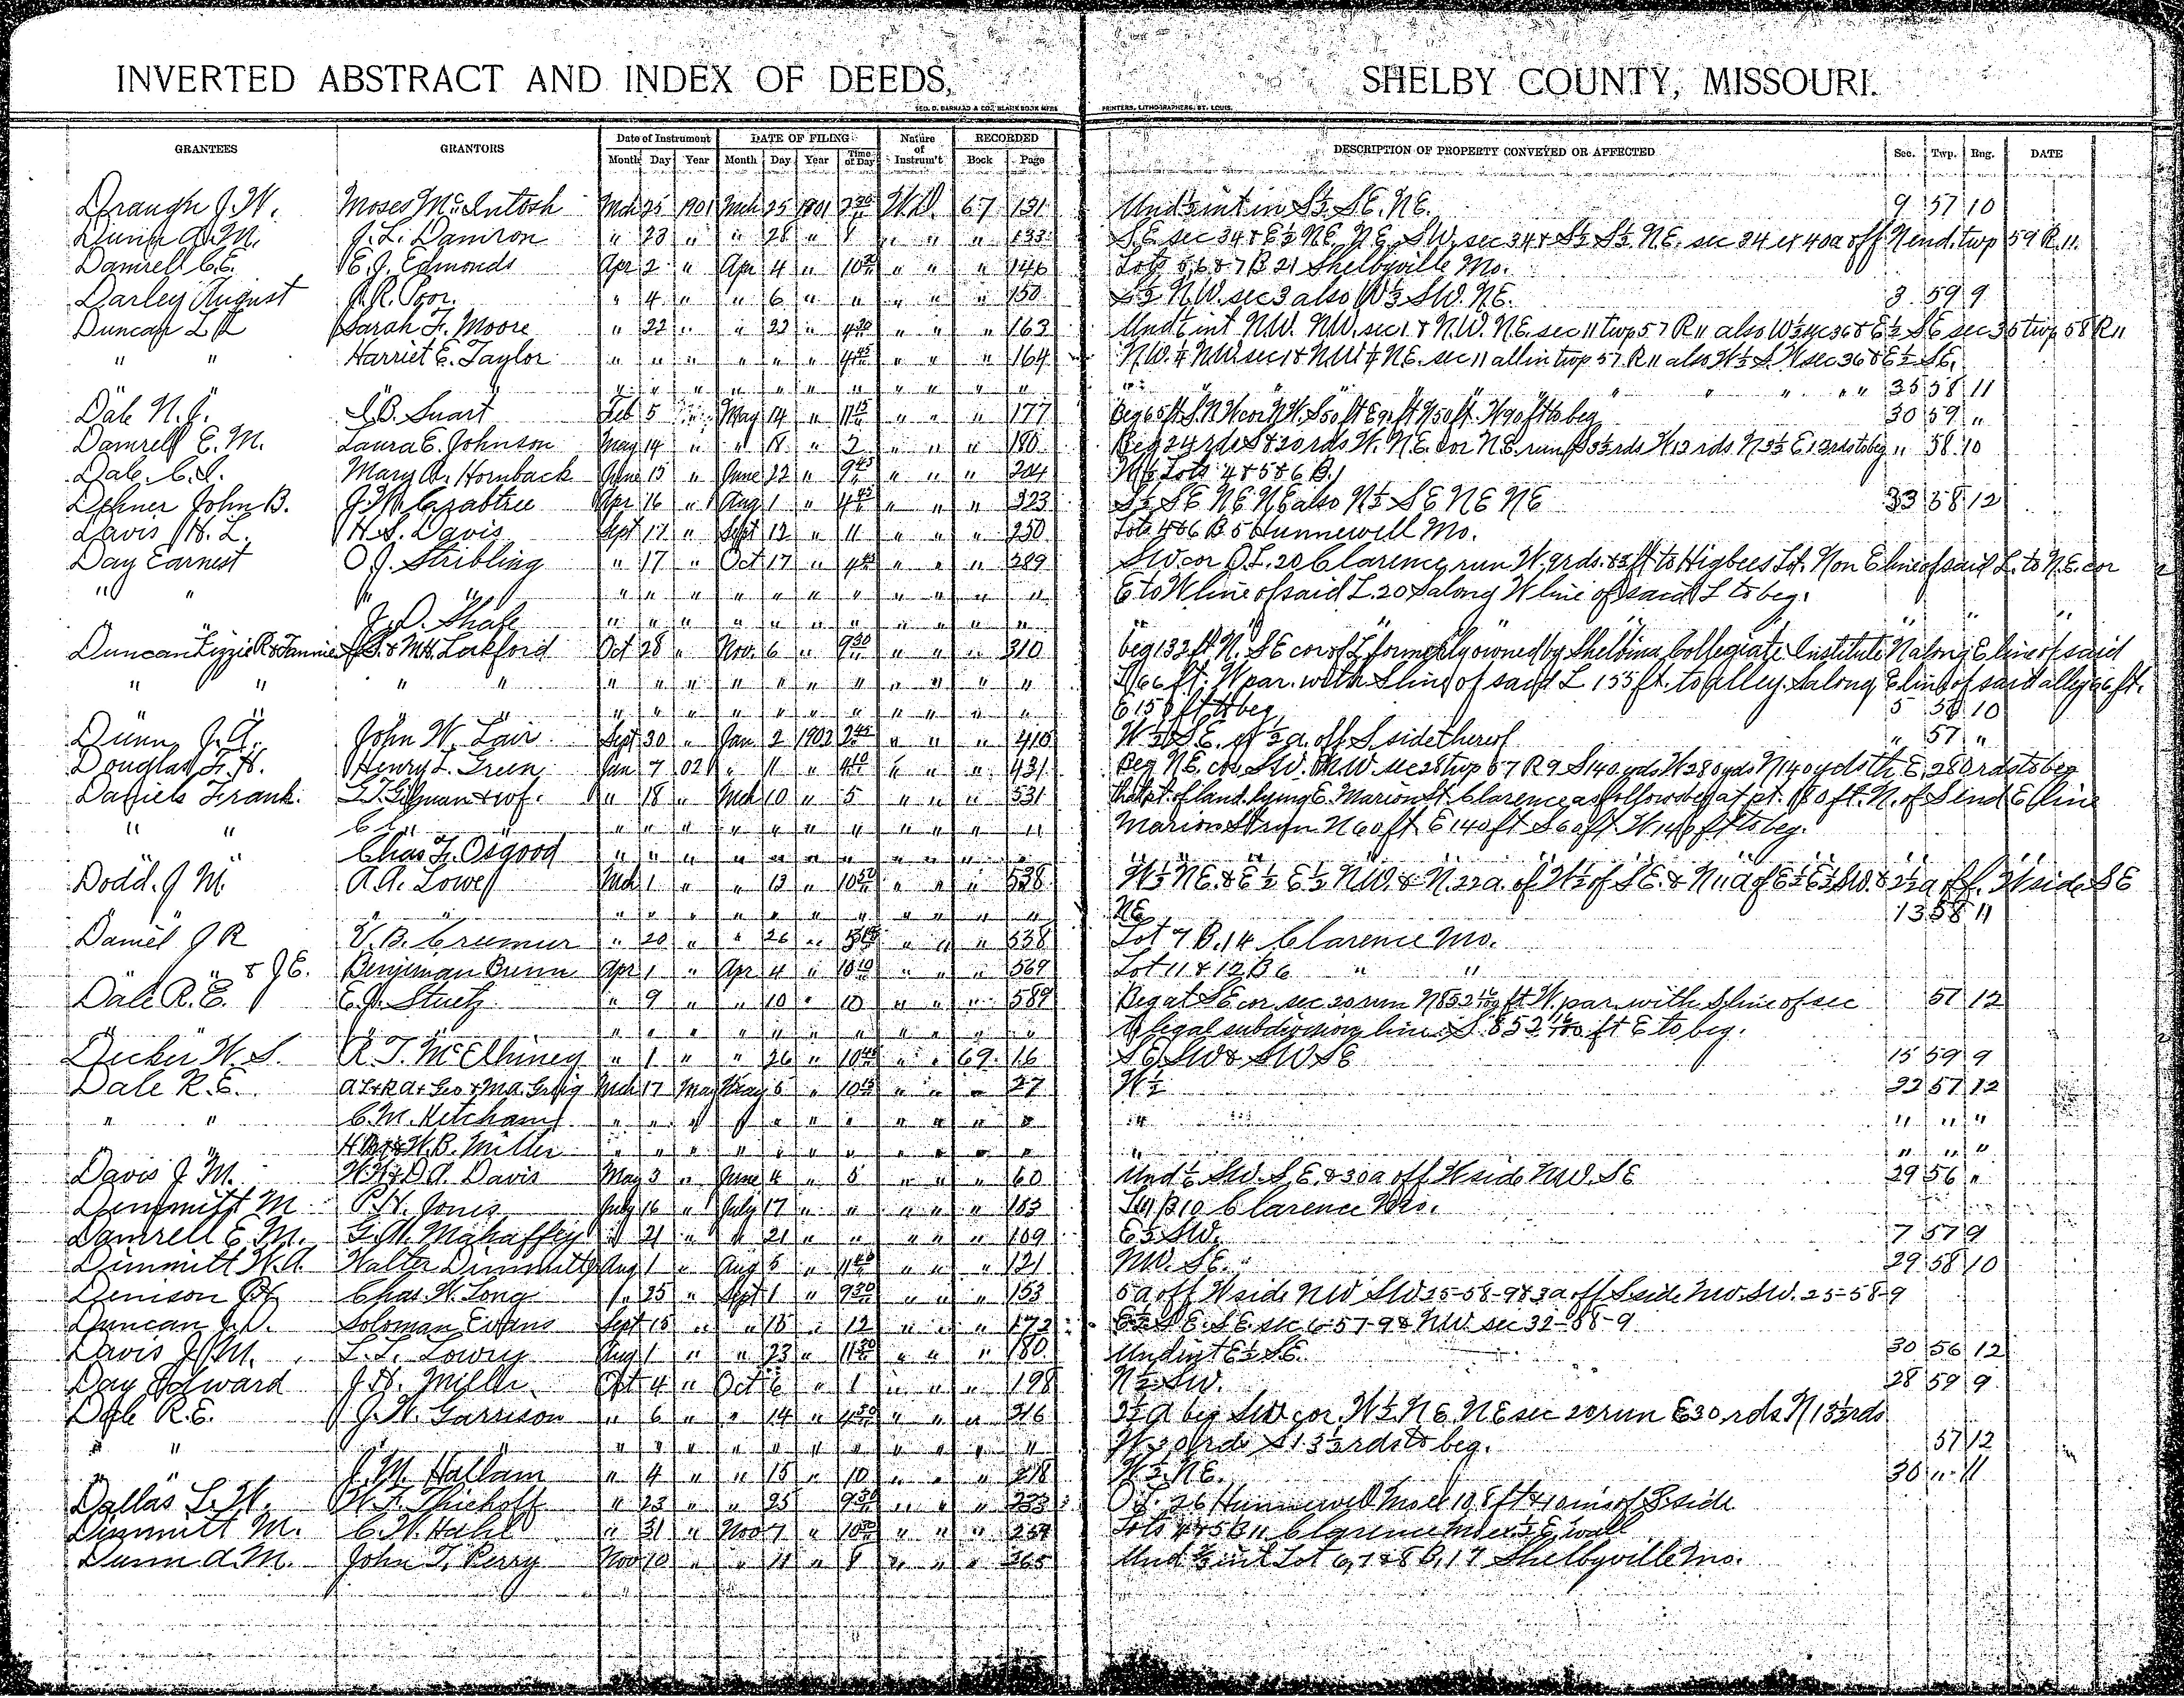 INVERTED ABSTRACT AND INDEX OF DEEDS, SHELBY COUNTY, MISSOURI.
GEO. D. BARNARD & CO., BLANK BOOK MFRS PRINTERS, LITHOGRAPHERS, ST. LOUIS.
GRANTEES GRANTORS Date of Instrument DATE OF FILING Nature of Instrum't RECORDED DESCRIPTION OF PROPERTY CONVEYED OR AFFECTED Sec. Twp. Rng. DATE
Month Day Year Month Day Year Time of Day Book Page
Draugh J. W. Moses McIntosh Mch 25 1901 Mch 25 1901 W.D. 67 131 Und ½ int in S½ S.E. N.E. 9 57 10
Dunn A. M. J. L. Damron " 23 " " 28 " 1 " " " 133 S.E. sec 34 & E½ N.E. N.E. S.W. sec 34 & S½ S½ N.E. sec 34 ex 40a off N end. twp 59 R. 11.
Damrell C. E. E. J. Edmonds Apr 2 " Apr 4 " " " " 146 Lots 5, 6 & 7 B 21 Shelbyville Mo.
Darley August J. R. Poor. " 4 " " 6 " " " " " 150 S½ N.W. sec 3 also W½ S.W. N.E. 3 59 9
Duncan L L Sarah F. Moore " 22 " " 23 " 4 30 " " " 163 N.W. N.W. sec 1 & N.W. N.E. sec 11 twp 57 R 11 also W½ sec 36 & E½ S.E. sec 35 twp 58 R 11
" " Harriet E. Taylor " " " " " " 4 45 " " " 164 N.W. ¼ N.W. sec 1 & N.W. ¼ N.E. sec 11 all in twp 57 R 11 also W½ S.W. sec 36 & E½ S.E.
" " " " " " " " " " " " " 35 58 11
Dale N. J. Feb 5 " May 14 " 11 15 " " " 177 Beg 65 ft S. N.W. cor N.W. S 50 ft E 92 ft N 50 ft. W 90 ft to beg 30 59 "
Damrell E. M. Laura E. Johnson May 14 " " 18 " 2 " " " 180 N.E. cor N.E. run S 3½ rds W 13 rds N 3½ E 13 rds to beg " 58 10
Dale C. S. Mary A. Hornback June 15 " June 22 " 9 45 " " " 204 Lots 4 & 5 & 6 B. 1
Dehner John B. J. M. Crabtree Apr 16 " Aug 1 " 4 45 " " " 223 S½ SE NE NE also N½ SE NE NE 33 58 12
Davis H. L. H. S. Davis Sept 17 " Sept 12 " 11 " " " 250 Lots 4 & 6 B 5 Hunnewell Mo.
Day Earnest O. J. Stribling " 17 " Oct 17 " " " " 289 S.W. cor O.L. 20 Clarence, run W. 9 rds. & 3 ft to Higbees Lot. N on E line of said L. to N.E. cor
" " " " " " " " " " " " " " E to W line of said L. 20 S along W line of said L to beg.
" J. D. Shale " " " " " " " " " " " " " "
Duncan Lizzie R & Fannie & M. H. Lockford Oct 28 " Nov. 6 " 9 30 " " " 310 beg 132 ft N. S E cor of L formerly owned by Shelbina Collegiate Institute N along E line of said
" " " " " " " " " " " " " " L 66 ft. W par. with S line of said L 155 ft. to alley. S along E line of said alley 66 ft.
" " " " " " " " " " " " " to beg 5 10
Dunn J. A. John W. Lair Sept 30 " Jan 2 1902 2 45 " " " 410 W½ S.E. ex ½ a. off S. side thereof " 57 "
Douglas F. H. Henry L. Green Jan 7 02 " 11 " " " " 431 Beg N.E. cor S.W. N.W. sec 28 twp 57 R 9 S 140 yds W 280 yds N 140 yds th E. 280 rds to beg
Daniels Frank. & wf. " 18 " Mch 10 " 5 " " " 531 That pt. of land lying E. Marion St. Clarence as follows beg at pt. 180 ft. N. of S end E line
" " " " " " " " " " " " " Marion St run N 60 ft E 140 ft S 60 ft. W 140 ft to beg.
" Chas F. Osgood " " " " " " " " " " " " " "
Dodd. J M. A. A. Lowe Mch 1 " " 13 " " " " 538 W½ N.E. & E½ E½ N.W. & N. 22 a. of W½ of S E. & N 11 a of E½ E½ S.W. & a off. W side S E
" " " " " " " " " " " " NE 13 58 11
Daniel J R V. B. Cremur " 20 " " 26 " " " " 538 Lot 7 B. 14 Clarence Mo.
" " & J. E. Benjeman Bunn Apr 1 " Apr 4 " 10 10 " " " 569 Lot 11 & 12 B 6 " "
Dale R. E. E. J. Stuetz " 9 " " 10 " 10 " " " 589 Beg at S E cor. sec 20 run N 852 ft W. par. with S line of sec 57 12
" " " " " " " " " " " " " legal subdivision line S. 852 ft E to beg.
Decker W. S. R. T. McElhiney " 1 " " 26 " 10 45 " " 69 16 S.E. S.W. & S W S E 15 59 9
Dale R. E. Mch 17 May May 5 " " " " 27 W½ 22 57 12
" " C. M. Ketcham " " " " " " " " " " " " " " "
" W. B. Miller " " " " " " " " " " " " " " "
Davis J. M. & D. A. Davis May 3 " June 4 " 5 " " " 60 S.W. S.E. & 30 a off W side N.W. S E 29 56 "
Dimmitt M P. H. Jones July 16 " July 17 " " " " " B 10 Clarence Mo.
Damrell E. M. G. W. Mahaffey " 21 " " 21 " " " " " 109 E½ S.W. 7 57 9
Dimmitt W. A Walter Dimmitt Aug 1 " Aug 5 " " " " 121 N.W. S.E. 29 58 10
Denison Chas. W. Long " 25 " Sept 1 " 9 30 " " " 153 5 a off W side N W S.W. 25-58-9 & 3 a off S side N.W. S.W. 25-58-9
Duncan J. D. Soloman Evans Sept 15 " " 15 " 12 " " " 172 S.E. S.E. sec 6-57-9 & N.W. sec 32-58-9
Davis J. M. L. L. Lowry Aug 1 " " 23 " 11 30 " " " 180 Und int E½ S.E. 30 56 12
Day Edward J. H. Miller Oct 4 " Oct 6 " 1 " " " 198 N½ S.W. 28 59 9
Dale R. E. J. W. Garrison " 6 " " 14 " 4 30 " " " 216 a beg S W cor. W½ N E. N E sec 20 run E 30 rds N 13½ rds
" " " " " " " " " " " " " " W 30 rds S 13½ rds to beg. 57 12
" " J. M. Hallam " 4 " " 15 " 10 " " " 218 W½ N.E. 36 " 11
Dallas L. W. W. F. Thiehoff " 23 " " 25 " 9 30 " " " 233 O.L. 26 Hunnewell Mo S side
Dimmitt M. C. W. Hahl " 31 " Nov 7 " " " " 259 Lots 4 & 5 B 11 Clarence Mo ex ½ E wall
Dunn A. M. John T. Perry Nov 10 " " 11 " " " " 265 Und int Lot 6, 7 & 8 B. 17 Shelbyville Mo.